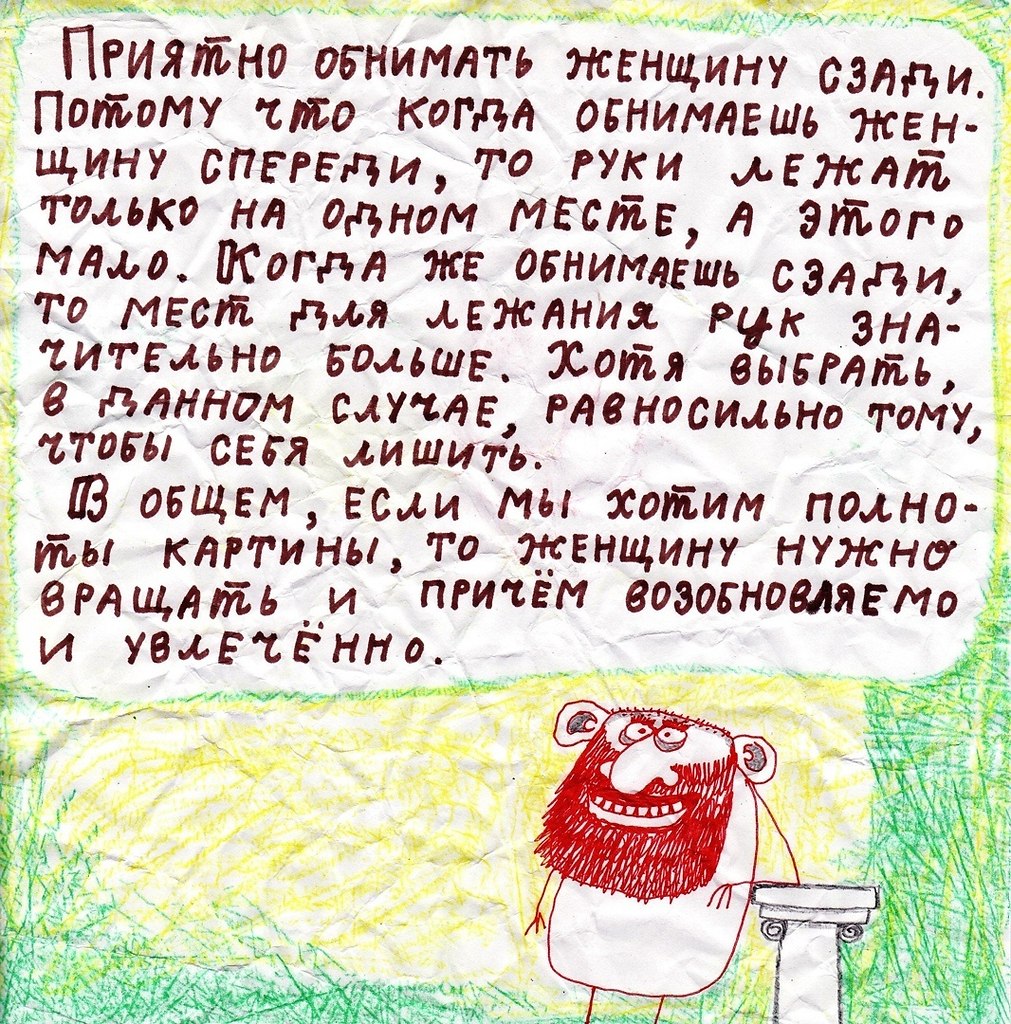 Приятно обнимать женщину сзади.
Потому что когда обнимаешь жен-
щину спереди, то руки лежат
только на одном месте, а этого
мало. Когда же обнимаешь сзади,
то мест для лежания рук зна-
чительно больше. Хотя выбрать,
в данном случае, равносильно тому,
чтобы себя лишить.
В общем, если мы хотим полно-
ты картины, то женщину нужно
вращать и причём возобновляемо
и увлечённо.